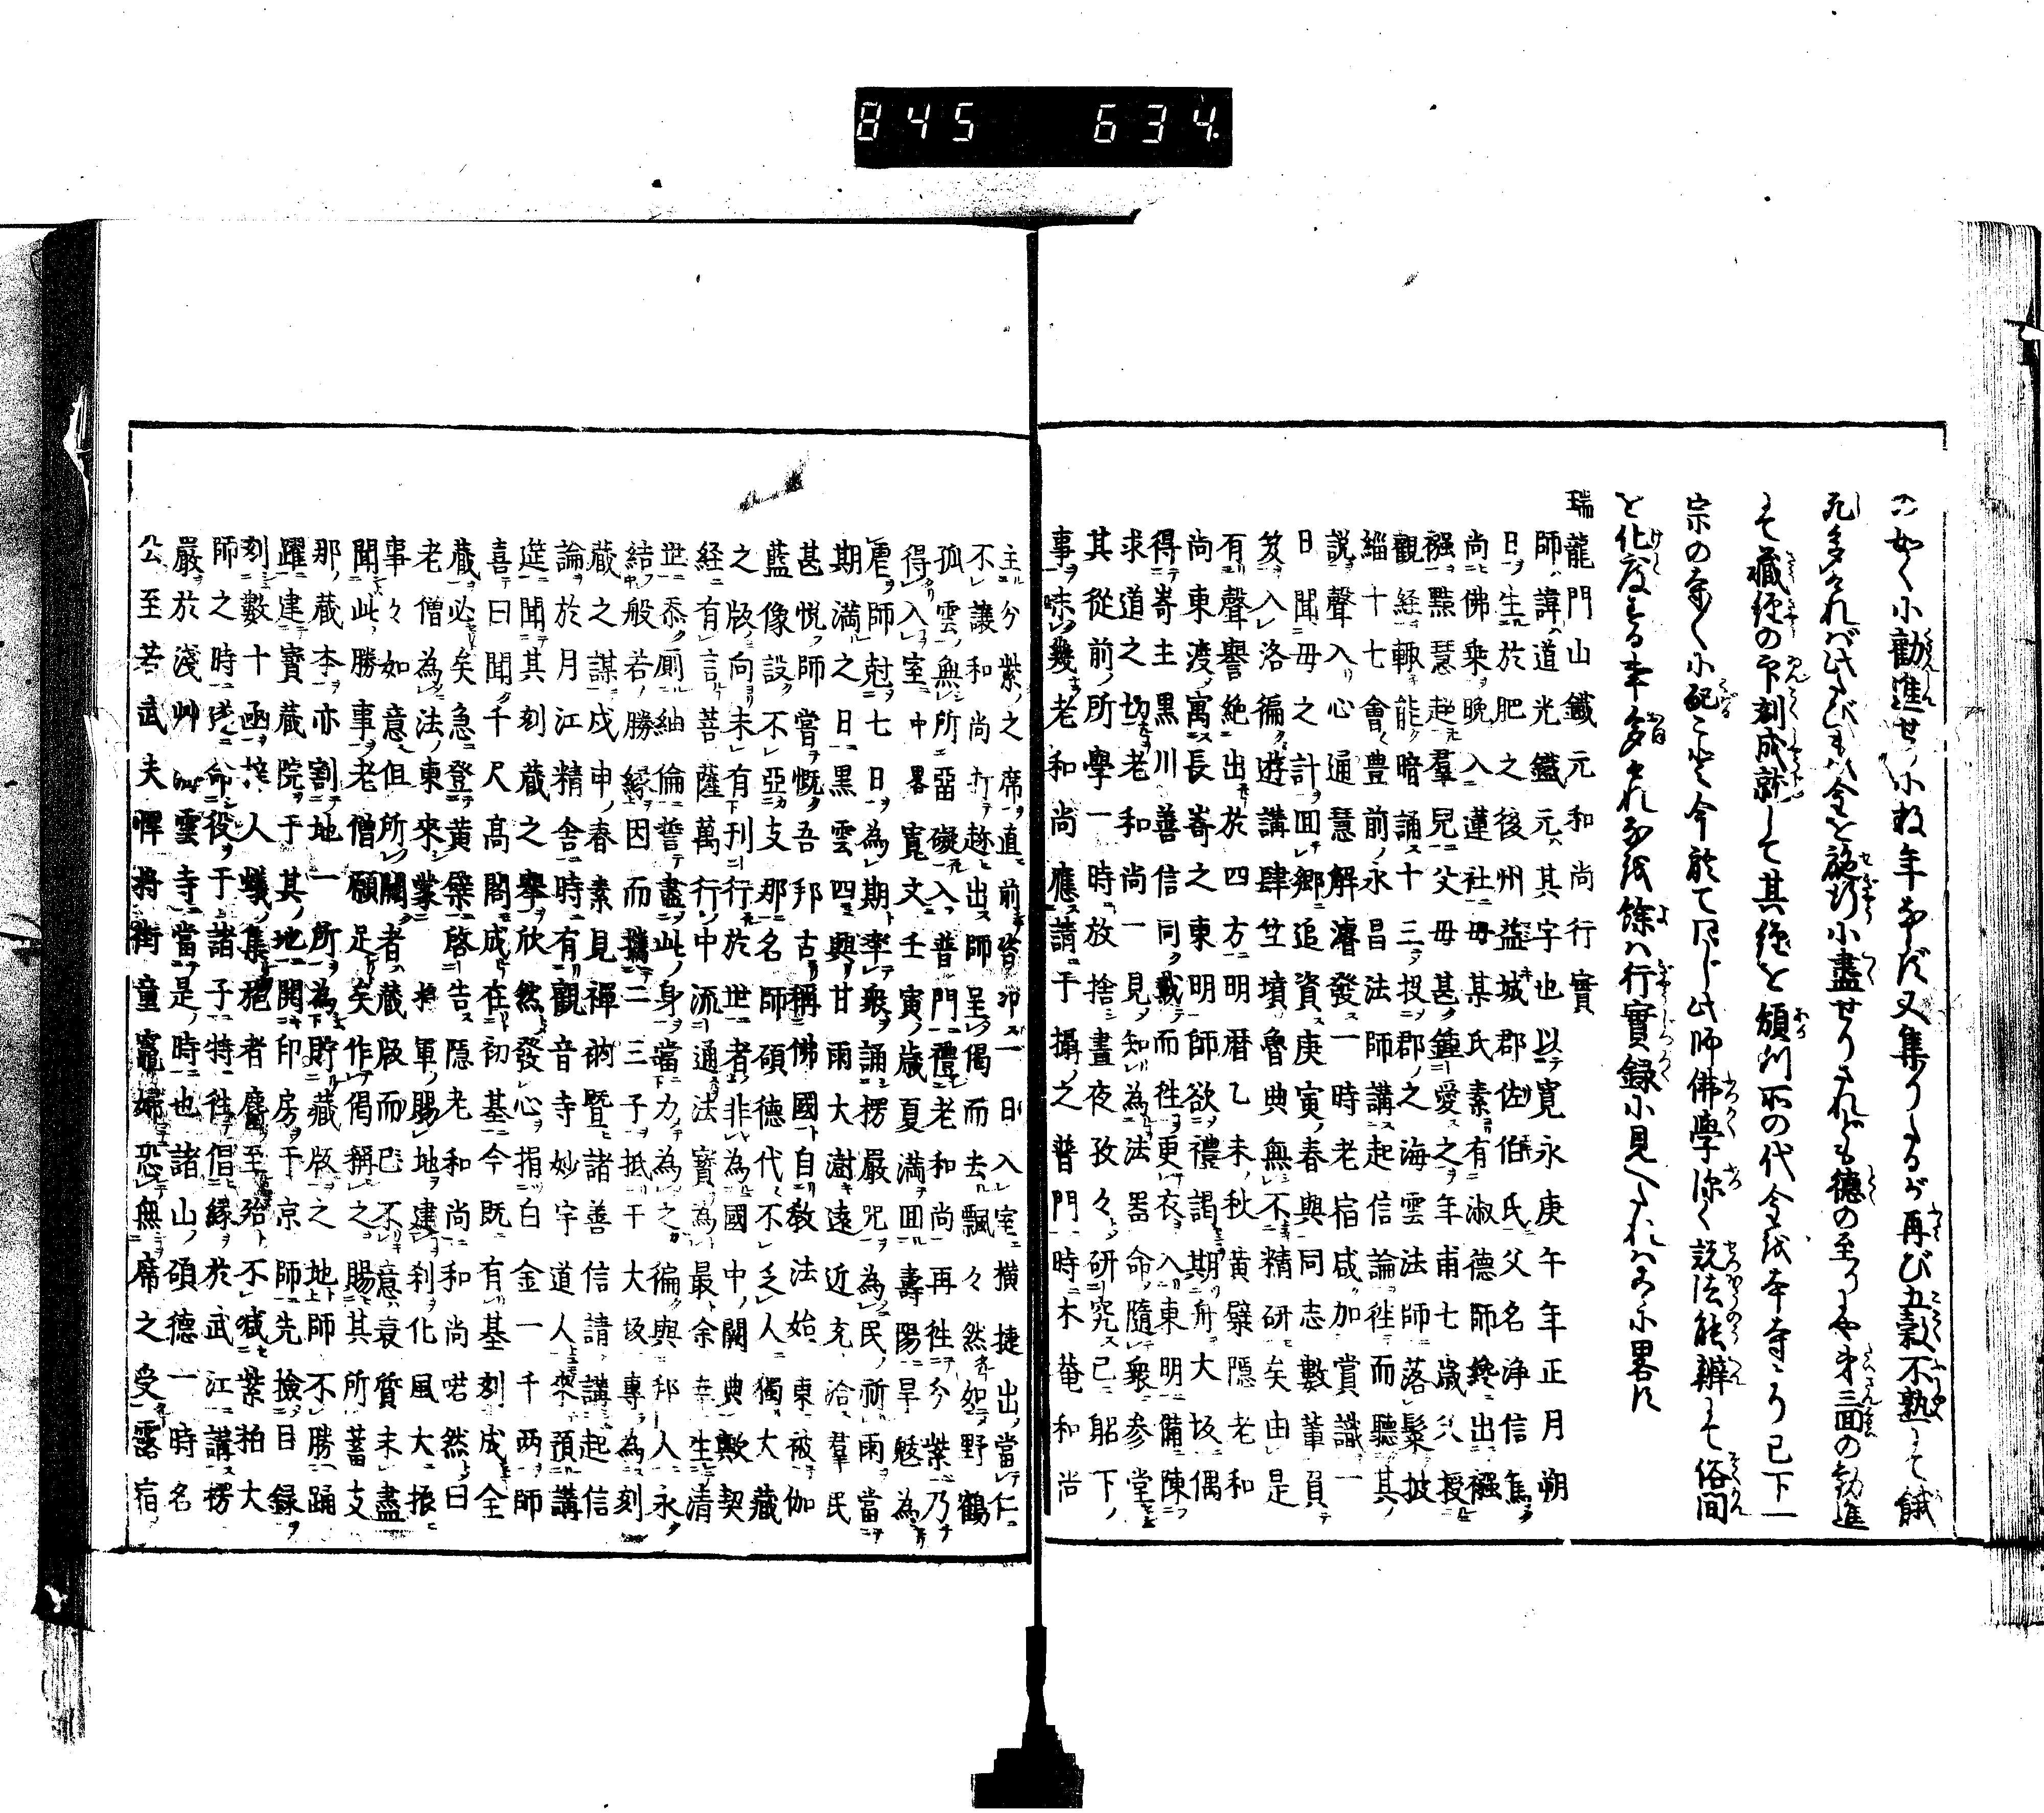 845 634
の如く小勧進せ小数年ならず又集りるが再び五穀不熟して餓
死多ければ此たびも金を施行小盡せりされども徳の至りや第三回の勧進
にて藏経の印刻成就して其徳を頒行の代今を以本寺より已下一
宗の寺々小配こと今於て同じ此師佛學深く説法能辨にて俗間
を化度る事多ければ餘は行實録小見へたればこゝに畧に
瑞龍門山鐵元和尚行實
師諱道光鐵元其字也以寛永庚午年正月朔
日生於肥之後州益城郡佐伯氏父名浄信篤
尚佛乘晩入蓮社母某氏素有淑德師纔出襁
褓點慧超羣兒父母甚鍾愛之年甫七歳父授
觀經輙能暗誦十三投郡之海雲法師落髮披
緇十七會豊前永昌法師講起信論徃而聽其
説聲入心通慧解濬發一時老宿咸加賞識一
日聞毋之計回郷追資庚寅春與同志數輩負
笈入洛徧遊講肆竺墳魯典無不精研矣由是
有聲譽絶出於四方明暦乙未秋黃檗隠老和
尚東渡寓長嵜之東明師欲禮謁期舟大坂偶
得嵜主黒川善信同載而徃更衣入東明備陳
求道之切老和尚一見知為法器命隨衆参堂
其從前所學一時放捨晝夜孜々研究已躬下
事未幾老和尚應請于攝之普門時木菴和尚
主分紫之席直前咨叩一日入室横捷出當仁
不讓和尚打趂出師呈偈而去飄々然如野鶴
孤雲無所罣礙入普門禮老和尚再徃分紫乃
得入室中畧寛文壬寅歳夏満回壽陽旱魃為
虐師尅七日為期率衆誦楞嚴咒為民祈雨當
期満之日黒雲四興甘雨大澍遠近充洽羣民
甚悦師當慨吾邦古稱佛國自教法始東被伽
藍像設不亞支那名師碩德代不乏人獨大藏
之版向未有刊行於世者非為國中闕典歟契
経有言菩薩萬行中流通法寳為最余幸生清
世忝厠紬倫誓盡此身當力為之徧與邦人永
結般若勝縁因而攜二三子抵于大坂專為刻
藏之謀戊申春素見禪衲曁諸善信請講起信
論於月江精舎時有觀音寺妙宇道人來預講
筵聞其刻藏之舉欣然發心捐白金一千両師
喜曰聞千尺高閣成在初基今既有基刻成全
藏必矣急登黄檗啓告隠老和尚和尚喏然曰
老僧為法東來蒙 將軍賜地建刹化風大振
事々如意但所闕者藏版而已不意衰質末盡
聞此勝事老僧願足矣作偈稱之賜其所蓄支
那藏本亦割地一所為貯藏版之地師不勝踊
躍建寳藏院于其地開印房于京師先撿目録
刻數十函於人蟻集施者麕至殆不減紫柏大
師之時遂命役于諸子特徃倡縁於武江講楞
嚴於淺艸 雲寺當是時也諸山碩德一時名
公至若武夫悍將街童竈婦恐無席之受露宿